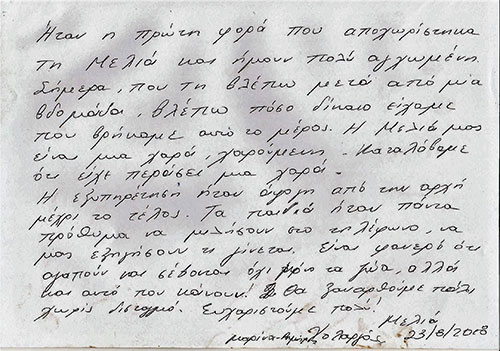 Ήταν η πρώτη φορά που αποχωρίστηκα
τη Μελιά και ήμουν πολύ αγχωμένη.
Σήμερα, που τη βλέπω μετά από μία
βδομάδα, βλέπω πόσο δίκαιο είχαμε
που βρήκαμε αυτό το μέρος. Η Μελιά μας
είναι μια χαρά, χαρούμενη. Καταλάβαμε
ότι είχε περάσει μια χαρά.
Η εξυπηρέτησή ήταν άψογη από την αρχή
μέχρι το τέλος. Τα παιδιά ήταν πάντα
πρόθυμα να μιλήσουν στο τηλέφωνο, να
μας εξηγήσουν τι γίνεται. Είναι φανερό ότι
αγαπούν και σέβονται όχι μόνο τα ζώα, αλλά
και αυτό που κάνουν! Θα ξαναρθούμε πάλι
χωρίς δισταγμό. Ευχαριστούμε πολύ!
Μελιά
23/8/2008